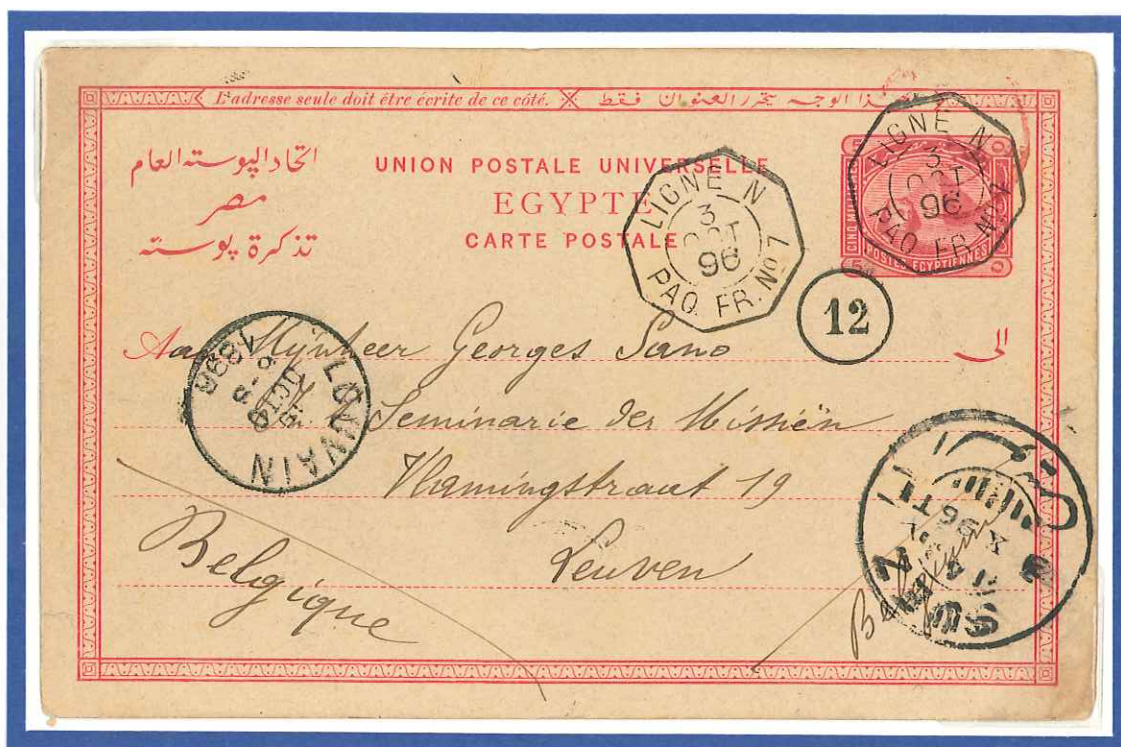 L'adresse seule doit être écrite de ce côté. هذا الوجه يحرر العنوان فقط
اتحاد البوسته العام
مصر
تذكرة پوسته
UNION POSTALE UNIVERSELLE
EGYPTE
CARTE POSTALE
LIGNE N
3
OCT
96
PAQ. FR. No 7
LIGNE N
3
OCT
96
PAQ. FR. No 7
POSTES EGYPTIENNES
12
Aan Mijnheer Georges Sano
الى
Seminarie der Missiën
Vlamingstraat 19
Leuven
Belgique
LOUVAIN
OCT
1896
SUEZ